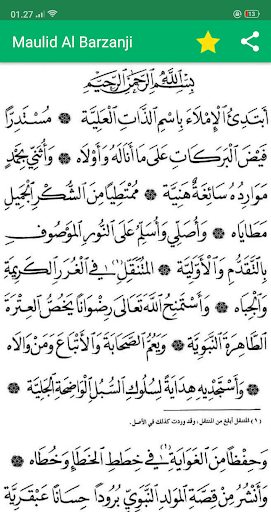 01.27
13%
Maulid Al Barzanji
بِسْمِ اللَّهِ الرَّحْمَنِ الرَّحِيمِ
أَبْتَدِئُ الْإِمْلَاءَ بِاسْمِ الذَّاتِ الْعَلِيَّةِ ۞ مُسْتَدِرًّا
فَيْضَ الْبَرَكَاتِ عَلَى مَا أَنَالَهُ وَأَوْلَاهُ ۞ وَأُثَنِّي بِحَمْدٍ
مَوَارِدُهُ سَائِغَةٌ هَنِيَّةٌ ۞ مُمْتَطِيًا مِنَ الشُّكْرِ الْجَمِيلِ
مَطَايَاهُ ۞ وَأُصَلِّي وَأُسَلِّمُ عَلَى النُّورِ الْمَوْصُوفِ
بِالتَّقَدُّمِ وَالْأَوَّلِيَّةِ ۞ الْمُنْتَقِلِ(١) فِي الْغُرَرِ الْكَرِيمَةِ
وَالْجِبَاهِ ۞ وَأَسْتَمْنِحُ اللَّهَ تَعَالَى رِضْوَانًا يَخُصُّ الْعِتْرَةَ
الطَّاهِرَةَ النَّبَوِيَّةَ ۞ وَيَعُمُّ الصَّحَابَةَ وَالْأَتْبَاعَ وَمَنْ وَالَاهُ
۞ وَأَسْتَجْدِيهِ هِدَايَةً لِسُلُوكِ السُّبُلِ الْوَاضِحَةِ الْجَلِيَّةِ ۞
(١) المتنقل أبلغ من المنتقل، وقد وردت كذلك في الأصل.
وَحِفْظًا مِنَ الْغَوَايَةِ(١) فِي خِطَطِ الْخَطَإِ وَخُطَاهُ ۞
وَأَنْشُرُ مِنْ قِصَّةِ الْمَوْلِدِ النَّبَوِيِّ بُرُودًا حِسَانًا عَبْقَرِيَّةً